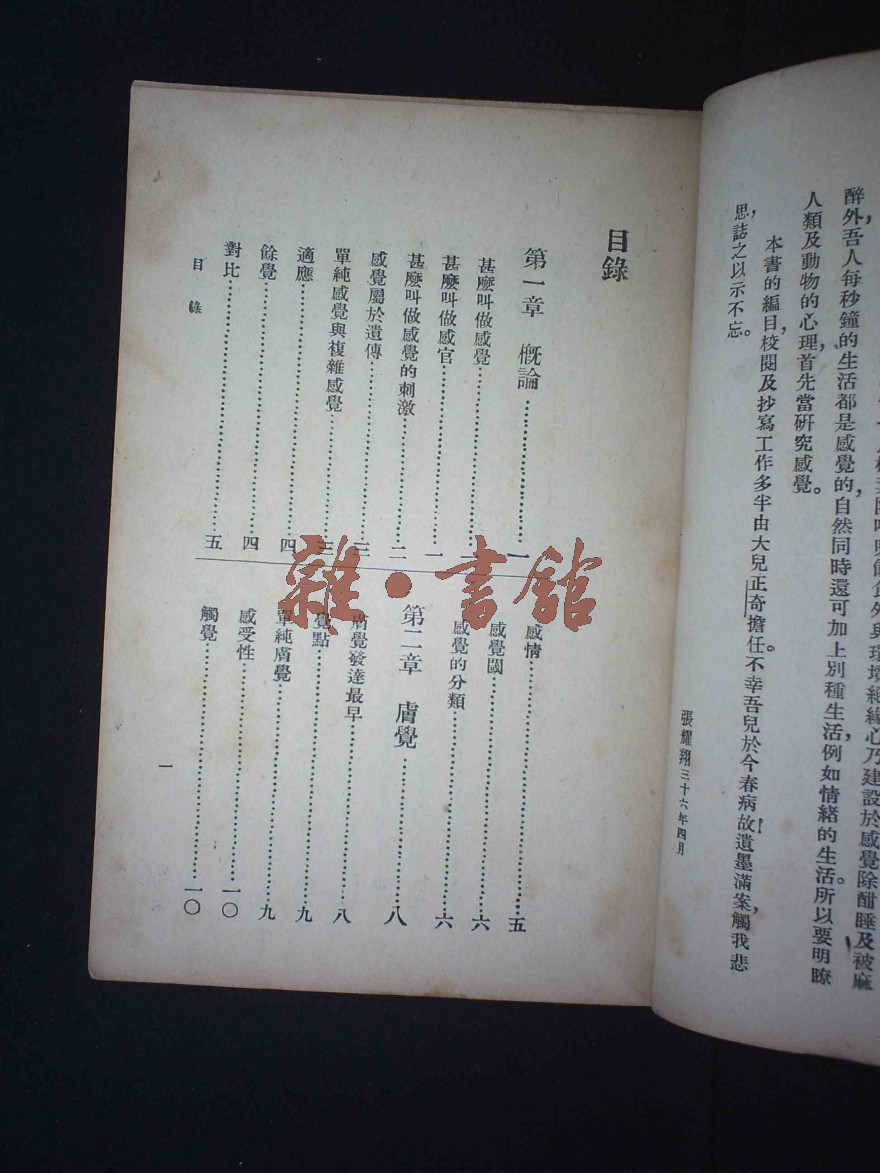 醉外，吾人每秒鐘的生活都是感覺的，自然同時還可加上別種生活，例如情緒的生活。所以要明瞭
人類及動物的心理，首先當研究感覺。
本書的編目，校閱及抄寫工作多半由大兒正奇擔任。不幸吾兒於今春病故！遺墨滿案，觸我悲
思，誌之以示不忘。
張耀翔三十六年四月
目錄
第一章 概論……一
甚麼叫做感覺……一
甚麼叫做感官……一
甚麼叫做感覺的刺激……二
感覺屬於遺傳……三
單純感覺與複雜感覺……三
適應……四
餘覺……四
對比……五
感情……五
感覺閾……六
感覺的分類……六
第二章 膚覺……八
膚覺發達最早……八
覺點……九
單純膚覺……九
感受性……一〇
觸覺……一〇
目錄
一
雜·書館